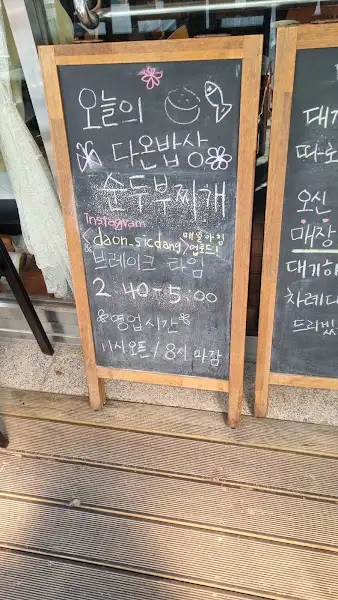 오늘의
다온밥상
순두부찌개
Instagram
<daon_sicdang> 매일아침
업로드!
브레이크 타임
2:40-5:00
영업시간
11시오픈 / 8시 마감
대기
따로
오신
매장
대기하
차례대
드리겠